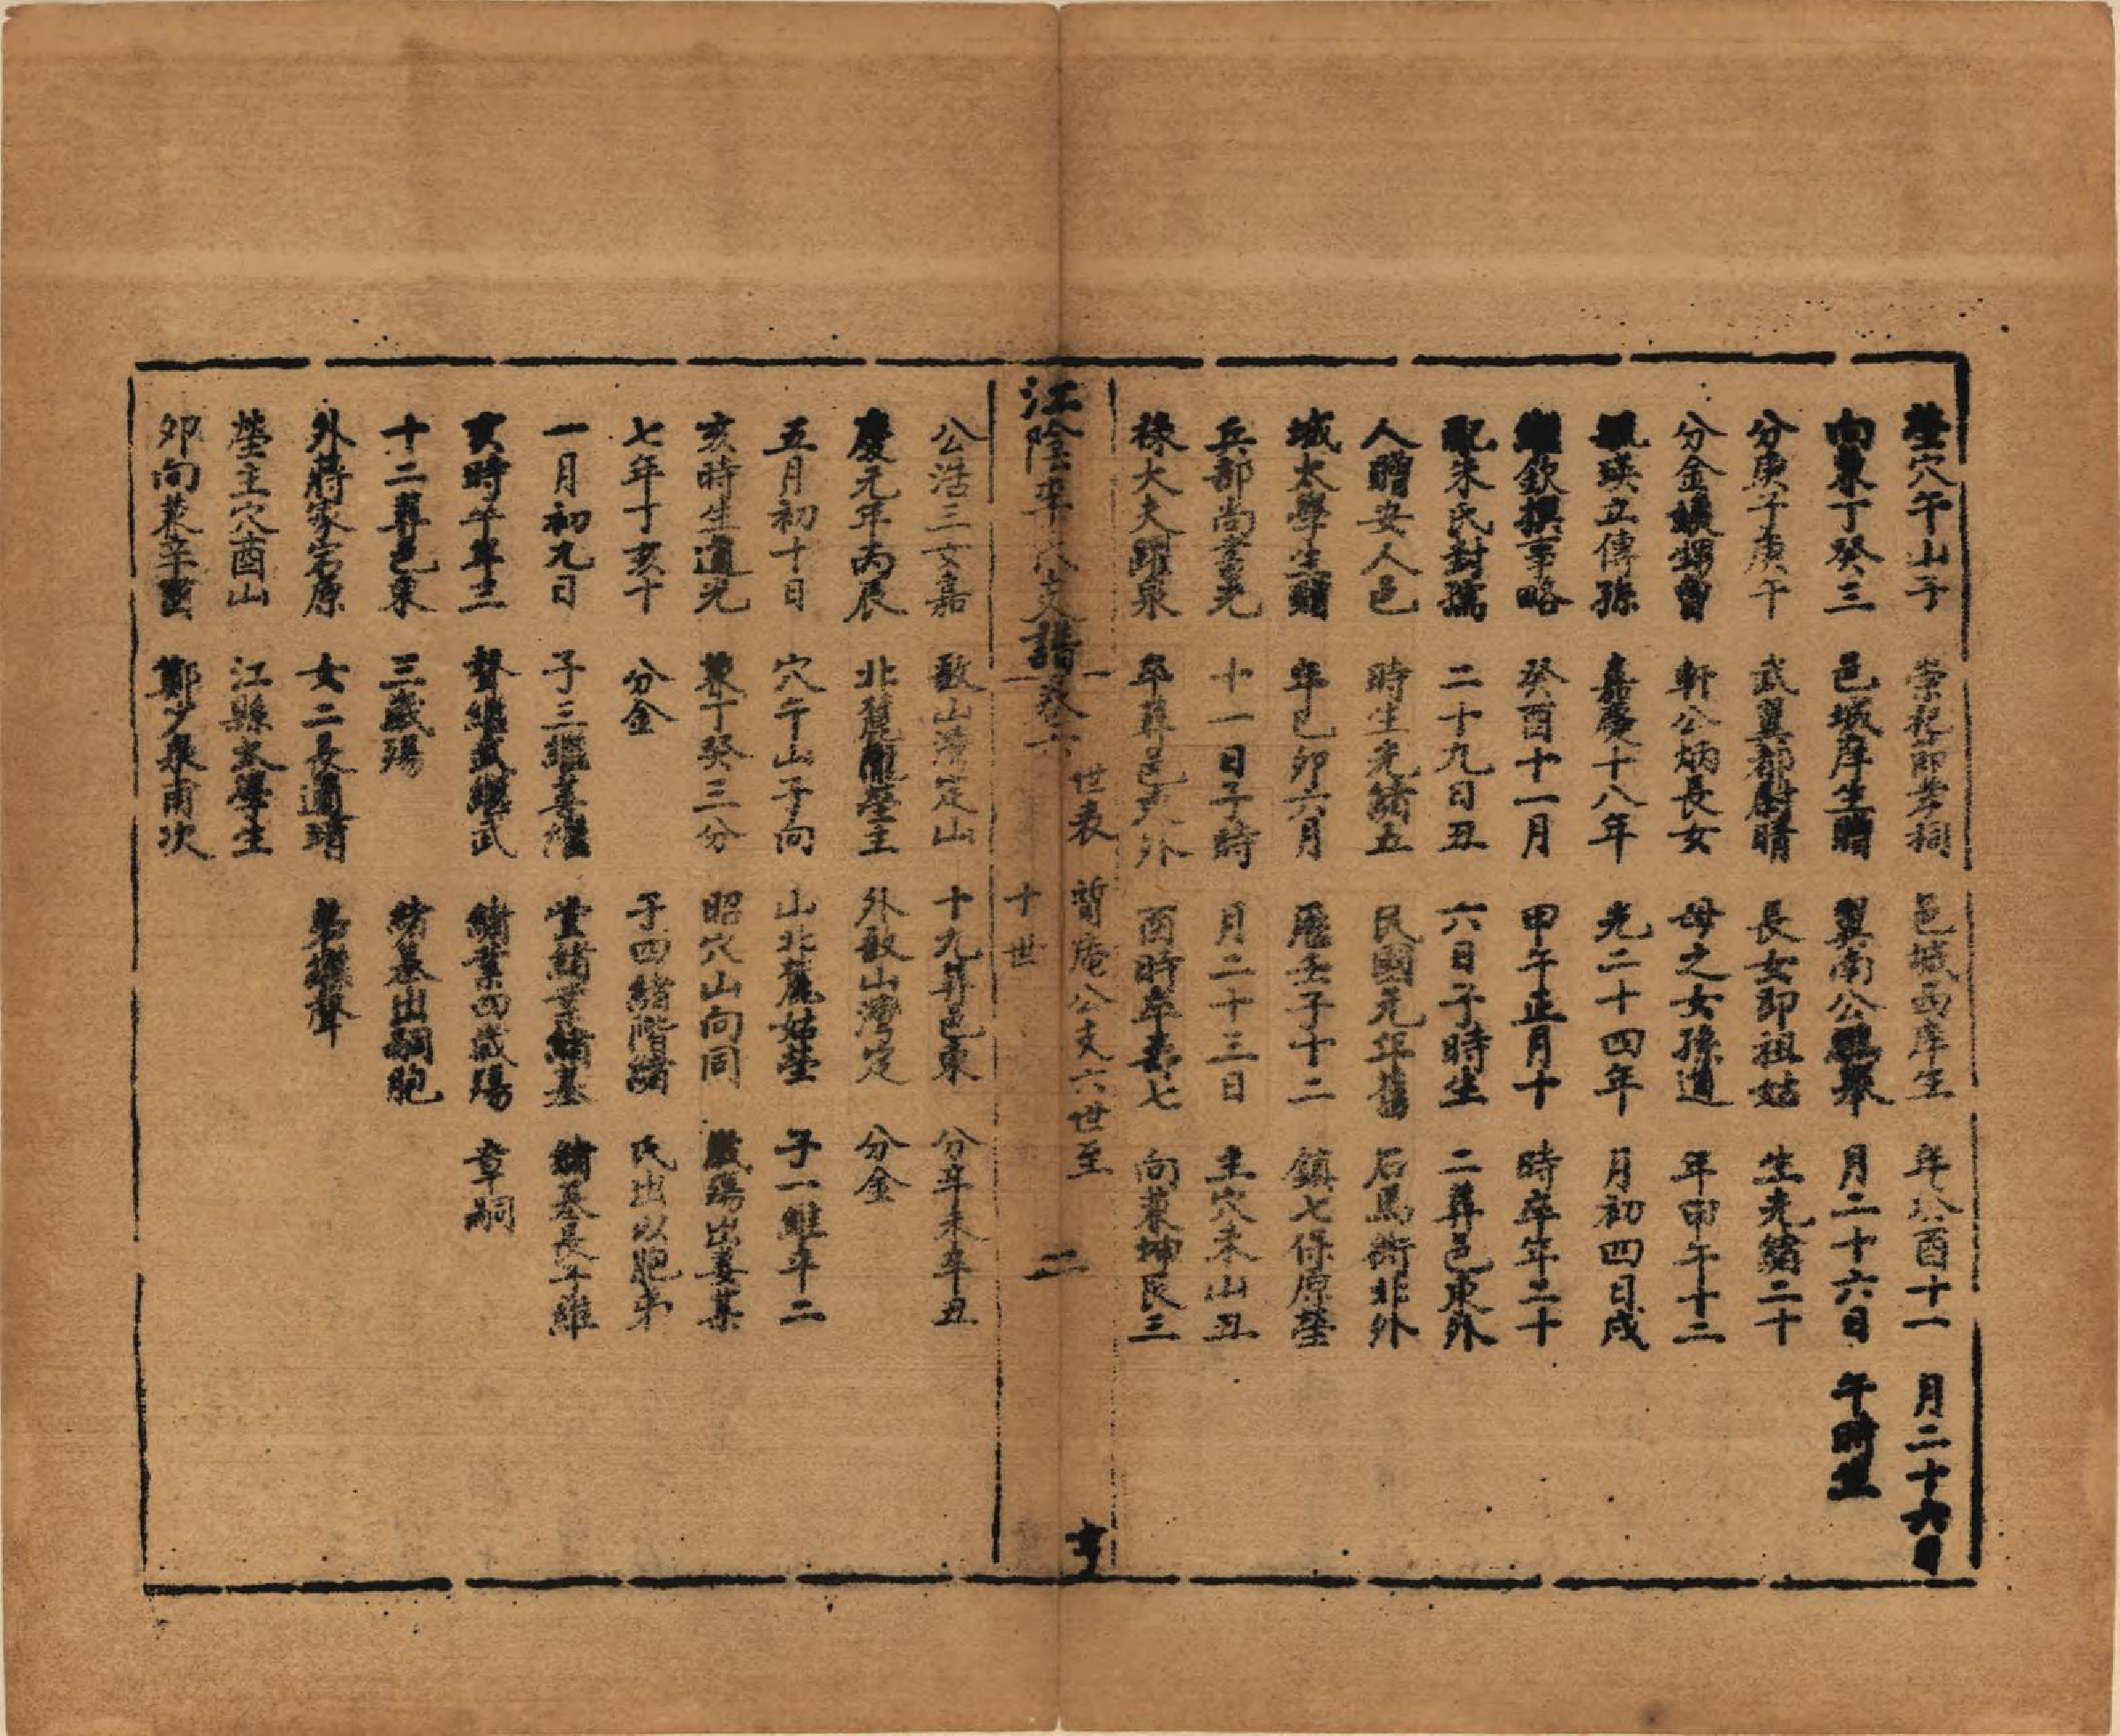 塋穴午山子 崇祀節孝祠 邑城西庠生 年癸酉十一 月二十六日
向兼丁癸三 邑城庠生贈 翼南公鵬舉 月二十六日 午時生
分庚子庚午 武翼都尉晴 長女即祖姑 生光緒二十
分金嫉甥曹 軒公炳長女 母之女孫道 年甲午十二
瑛立傳孫 嘉慶十八年 光二十四年 月初四日戌
欽撰事略 癸酉十一月 甲午正月十 時卒年二十
配朱氏封孺 二十九日丑 六日子時生 二葬邑東外
人贈安人邑 時生光緒五 民國元年舊 石馬衖北外
城太學生贈 年己卯六月 曆壬子十二 鎮七保原塋
兵部尚書光 十一日子時 月二十三日 主穴未山丑
祿大夫躍泉 卒葬邑東外 酉時卒壽七 向兼坤艮三
江陰 支譜 卷六 世表 哲庵公支六世至
十世 二 亨
公浩三女嘉 敔山灣定山 十九葬邑東 分辛未辛丑
慶元年丙辰 北麓塋主 外敔山灣定 分金
五月初十日 穴午山子向 山北麓姑塋 子一維平二
亥時生道光 兼丁癸三分 昭穴山向同 歲殤出姜某
七年丁亥十 分金 子四緒階緒 氏出以胞弟
一月初九日 子三繼善繼 堂緒業緒基 緒基長子維
亥時卒年三 聲繼武繼武 緒業四歲殤 章嗣
十二葬邑東 三歲殤 緒基出嗣胞
外蔣家宕原 女二長適靖 弟繼聲
塋主穴酉山 江縣太學生
卯向兼辛酉 鄭少泉甫次